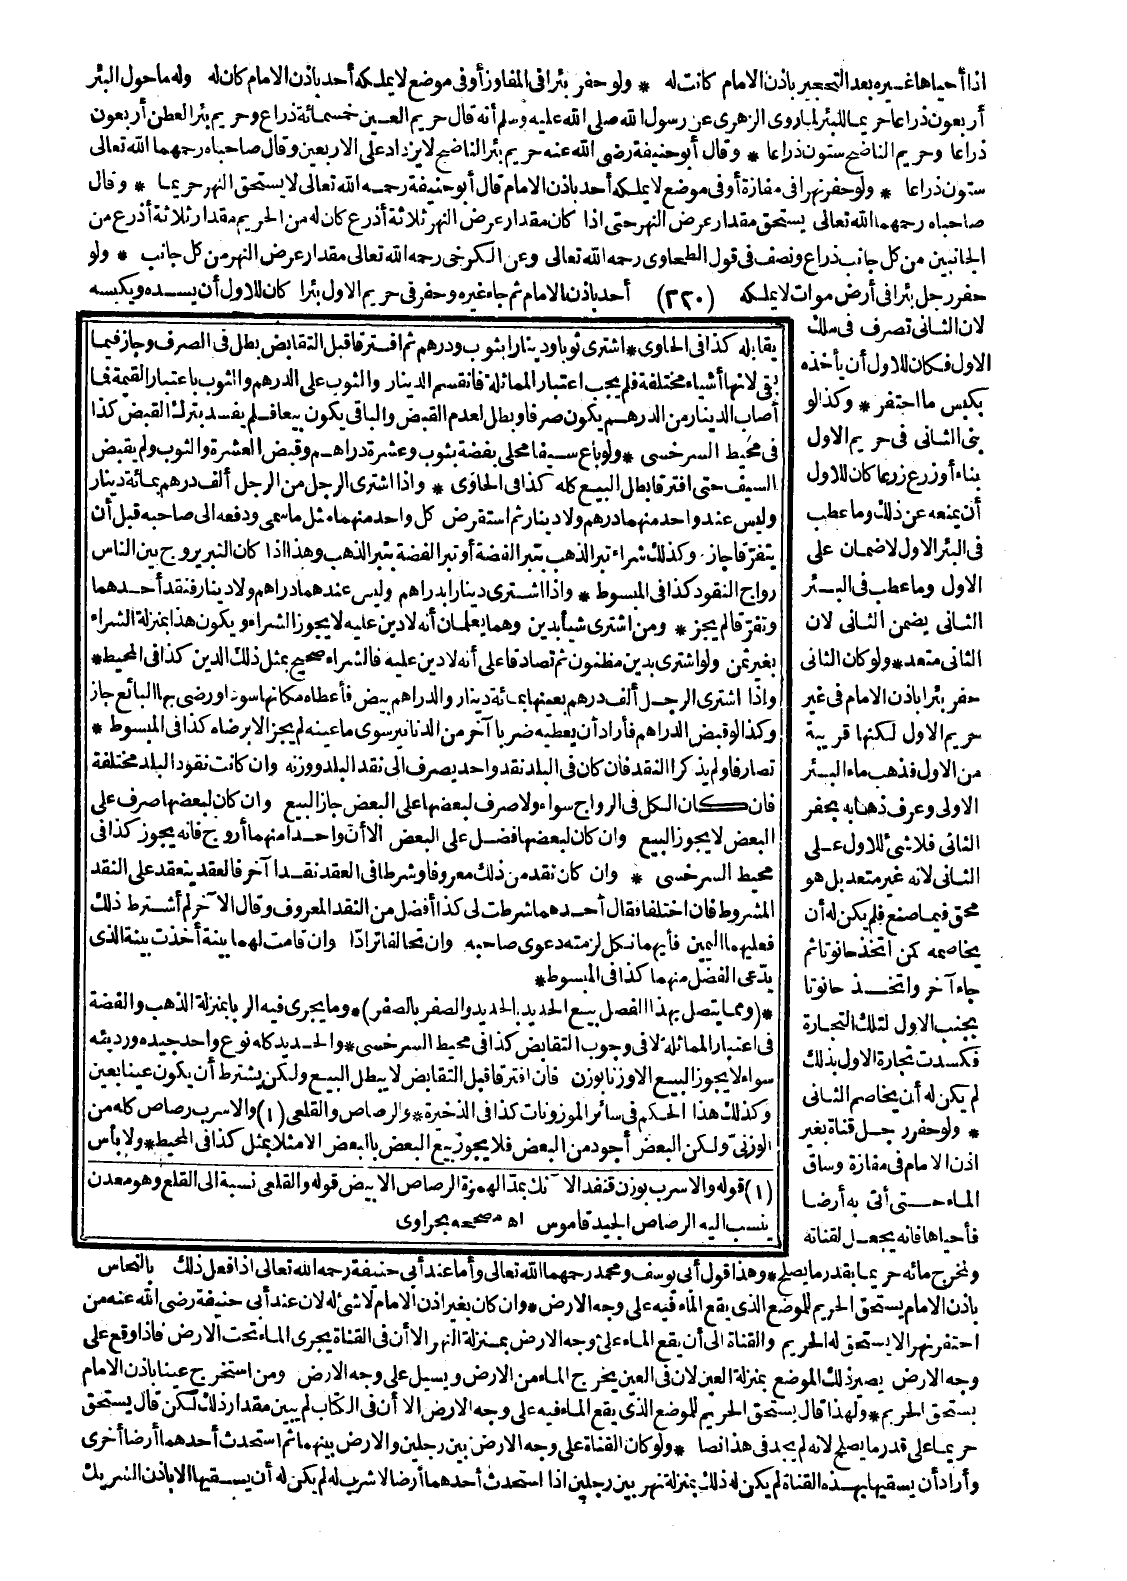 اذا أحياها غيره بعد التحجير باذن الامام كانت له * ولو حفر بئرا فى المفاوز أو فى موضع لا يملكه أحد باذن الامام كان له وله ما حول البئر
أربعون ذراعا حريما للبئر لما روى الزهرى عن رسول الله صلى الله عليه وسلم أنه قال حريم العين خمسمائة ذراع وحريم بئر العطن أربعون
ذراعا وحريم الناضح ستون ذراعا * وقال أبو حنيفة رضى الله عنه حريم بئر الناضح لا يزداد على الاربعين وقال صاحباه رحمهما الله تعالى
ستون ذراعا * ولو حفر نهرا فى مفازة أو فى موضع لا يملكه أحد باذن الامام قال أبو حنيفة رحمه الله تعالى لا يستحق النهر حريما * وقال
صاحباه رحمهما الله تعالى يستحق مقدار عرض النهر حتى اذا كان مقدار عرض النهر ثلاثة أذرع كان له من الحريم مقدار ثلاثة أذرع من
الجانبين من كل جانب ذراع ونصف فى قول الطحاوى رحمه الله تعالى وعن الكرخى رحمه الله تعالى مقدار عرض النهر من كل جانب * ولو
حفر رجل بئرا فى أرض موات لا يملكه (٢٢٠) أحد باذن الامام ثم جاء غيره وحفر فى حريم الاول بئرا كان للاول أن يسده ويكبسه
لان الثانى تصرف فى ملك
الاول فكان للاول أن يأخذه
بكبس ما احتفر * وكذا لو
بنى الثانى فى حريم الاول
بناء أو زرع زرعا كان للاول
أن يمنعه عن ذلك وما عطب
فى البئر الاول لا ضمان على
الاول وما عطب فى البئر
الثانى يضمن الثانى لان
الثانى متعد * ولو كان الثانى
حفر بئرا باذن الامام فى غير
حريم الاول لكنها قريبة
من الاول فذهب ماء البئر
الاولى وعرف ذهابه بحفر
الثانى فلا شئ للاول على
الثانى لانه غير متعد بل هو
محق فيما صنع فلم يكن له أن
يخاصمه كمن اتخذ حانوتا ثم
جاء آخر واتخذ حانوتا
بجنب الاول لتلك التجارة
فكسدت تجارة الاول بذلك
لم يكن له أن يخاصم الثانى
* ولو حفر رجل قناة بغير
اذن الامام فى مفازة وساق
الماء حتى أتى به أرضا
فأحياها فانه يجعل لقناته
يقابله كذا فى الحاوى * اشترى ثوبا ودينارا بثوب ودرهم ثم افترقا قبل التقابض بطل فى الصرف وجاز فيما
بقى لانها أشياء مختلفة فلم يجب اعتبار المماثلة فانقسم الدينار والثوب على الدرهم والثوب باعتبار القيمة فما
أصاب الدينار من الدرهم يكون صرفا وبطل لعدم القبض والباقى يكون بيعا فلم يفسد بترك القبض كذا
فى محيط السرخسى * ولو باع سيفا محلى بفضة بثوب وعشرة دراهم وقبض العشرة والثوب ولم يقبض
السيف حتى افترقا بطل البيع كله كذا فى الحاوى * واذا اشترى الرجل من الرجل ألف درهم بمائة دينار
وليس عند واحد منهما درهم ولا دينار ثم استقرض كل واحد منهما مثل ما سمى ودفعه الى صاحبه قبل أن
يتفرقا جاز وكذلك شراء تبر الذهب بتبر الفضة أو تبر الفضة بتبر الذهب وهذا اذا كان التبر يروج بين الناس
رواج النقود كذا فى المبسوط * واذا اشترى دينارا بدراهم وليس عندهما دراهم ولا دينار فنقد أحدهما
وتفرقا لم يجز * ومن اشترى شيأ بدين وهما يعلمان أنه لا دين عليه لا يجوز الشراء ويكون هذا بمنزلة الشراء
بغير ثمن ولو اشترى بدين مظنون ثم تصادقا على أنه لا دين عليه فالشراء صحيح بمثل ذلك الدين كذا فى المحيط *
واذا اشترى الرجل ألف درهم بعينها بمائة دينار والدراهم بيض فأعطاه مكانها سودا ورضى بها البائع جاز
وكذا لو قبض الدراهم فأراد أن يعطيه ضربا آخر من الدنانير سوى ما عينه لم يجز الا برضاه كذا فى المبسوط *
تصارفا ولم يذكرا النقد فان كان فى البلد نقد واحد يصرف الى نقد البلد ووزنه وان كانت نقود البلد مختلفة
فان كان الكل فى الرواج سواء ولا صرف لبعضها على البعض جاز البيع وان كان لبعضها صرف على
البعض لا يجوز البيع وان كان لبعضها فضل على البعض الا أن واحدا منهما أروج فانه يجوز كذا فى
محيط السرخسى * وان كان نقد من ذلك معروفا وشرطا فى العقد نقدا آخر فالعقد ينعقد على النقد
المشروط فان اختلفا فقال أحدهما شرطت لى كذا أفضل من النقد المعروف وقال الآخر لم أشترط ذلك
فعليهما اليمين فأيهما نكل لزمته دعوى صاحبه وان تحالفا ترادا وان قامت لهما بينة أخذت بينة الذى
يدعى الفضل منهما كذا فى المبسوط *
* (ومما يتصل بهذا الفصل بيع الحديد بالحديد والصفر بالصفر) * وما يجرى فيه الربا بمنزلة الذهب والفضة
فى اعتبار المماثلة لا فى وجوب التقابض كذا فى محيط السرخسى * والحديد كله نوع واحد جيده ورديئه
سواء لا يجوز البيع الا وزنا بوزن فان افترقا قبل التقابض لا يبطل البيع ولكن يشترط أن يكون عينا بعين
وكذلك هذا الحكم فى سائر الموزونات كذا فى الذخيرة * والرصاص والقلعى (١) والاسرب رصاص كله من
الوزنى ولكن البعض أجود من البعض فلا يجوز بيع البعض بالبعض الا مثلا بمثل كذا فى المحيط * ولا بأس
(١) قوله والاسرب بوزن قنفذ الآنك بمد الهمزة الرصاص الابيض قوله والقلعى نسبة الى القلع وهو معدن
ينسب اليه الرصاص الجيد قاموس اه مصححه بحراوى
ونخرج مائه حريما بقدر ما يصلح * وهذا قول أبى يوسف ومحمد رحمهما الله تعالى وأما عند أبى حنيفة رحمه الله تعالى اذا فعل ذلك بالنحاس
باذن الامام يستحق الحريم للموضع الذى يقع الماء فيه على وجه الارض * وان كان بغير اذن الامام لا شئ له لان عند أبى حنيفة رضى الله عنه من
احتفر نهرا لا يستحق له الحريم والقناة الى أن يقع الماء على وجه الارض بمنزلة النهر الا أن فى القناة يجرى الماء تحت الارض فاذا وقع على
وجه الارض يصير ذلك الموضع بمنزلة العين لان فى العين يخرج الماء من الارض ويسيل على وجه الارض ومن استخرج عينا باذن الامام
يستحق الحريم * ولهذا قال يستحق الحريم للموضع الذى يقع الماء فيه على وجه الارض الا أن فى الكتاب لم يبين مقدار ذلك لكن قال يستحق
حريما على قدر ما يصلح لانه لم يجد فى هذا نصا * ولو كان القناة على وجه الارض بين رجلين والارض بينهما ثم استحدث أحدهما أرضا أخرى
وأراد أن يسقيها بهذه القناة لم يكن له ذلك بمنزلة نهر بين رجلين اذا استحدث أحدهما أرضا لا شرب له لم يكن له أن يسقيها الا باذن الشريك